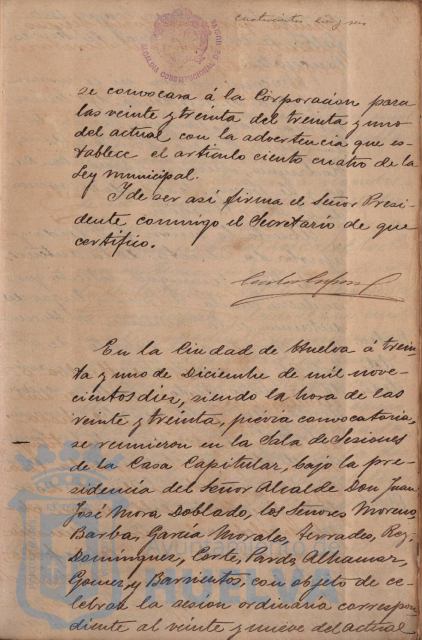 se convocara á la Corporacion para
las veinte y treinta del treinta y uno
del actual con la advertencia que es-
tablece el artículo ciento cuatro de la
Ley municipal.
I de ser así firma el Señor Presi-
dente conmigo el Secretario de que
certifico.
En la Ciudad de Huelva á trein-
ta y uno de Diciembre de mil nove-
cientos diez, siendo la hora de las
veinte y treinta, previa convocatoria,
se reunieron en la Sala de Sesiones
de la Casa Capitular, bajo la pre-
sidencia del Señor Alcalde Don Juan
José Mora Doblado, los Señores Moreno,
Barba, García Morales, Terrades, Rey,
Domínguez, Corte, Pardo, Alhamar,
Gomez y Barrientos, con objeto de ce-
lebrar la sesion ordinaria correspon-
diente al veinte y nueve del actual
HUELVA